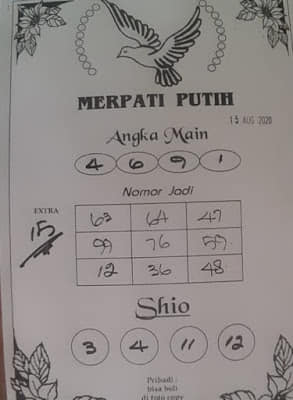 MERPATI PUTIH
15 AUG 2020
Angka Main
4 6 9 1
Nomor Jadi
EXTRA
15
63 64 47
99 76
12 36 48
Shio
3 4 11 12
Pribadi :
bisa beli
di foto copy